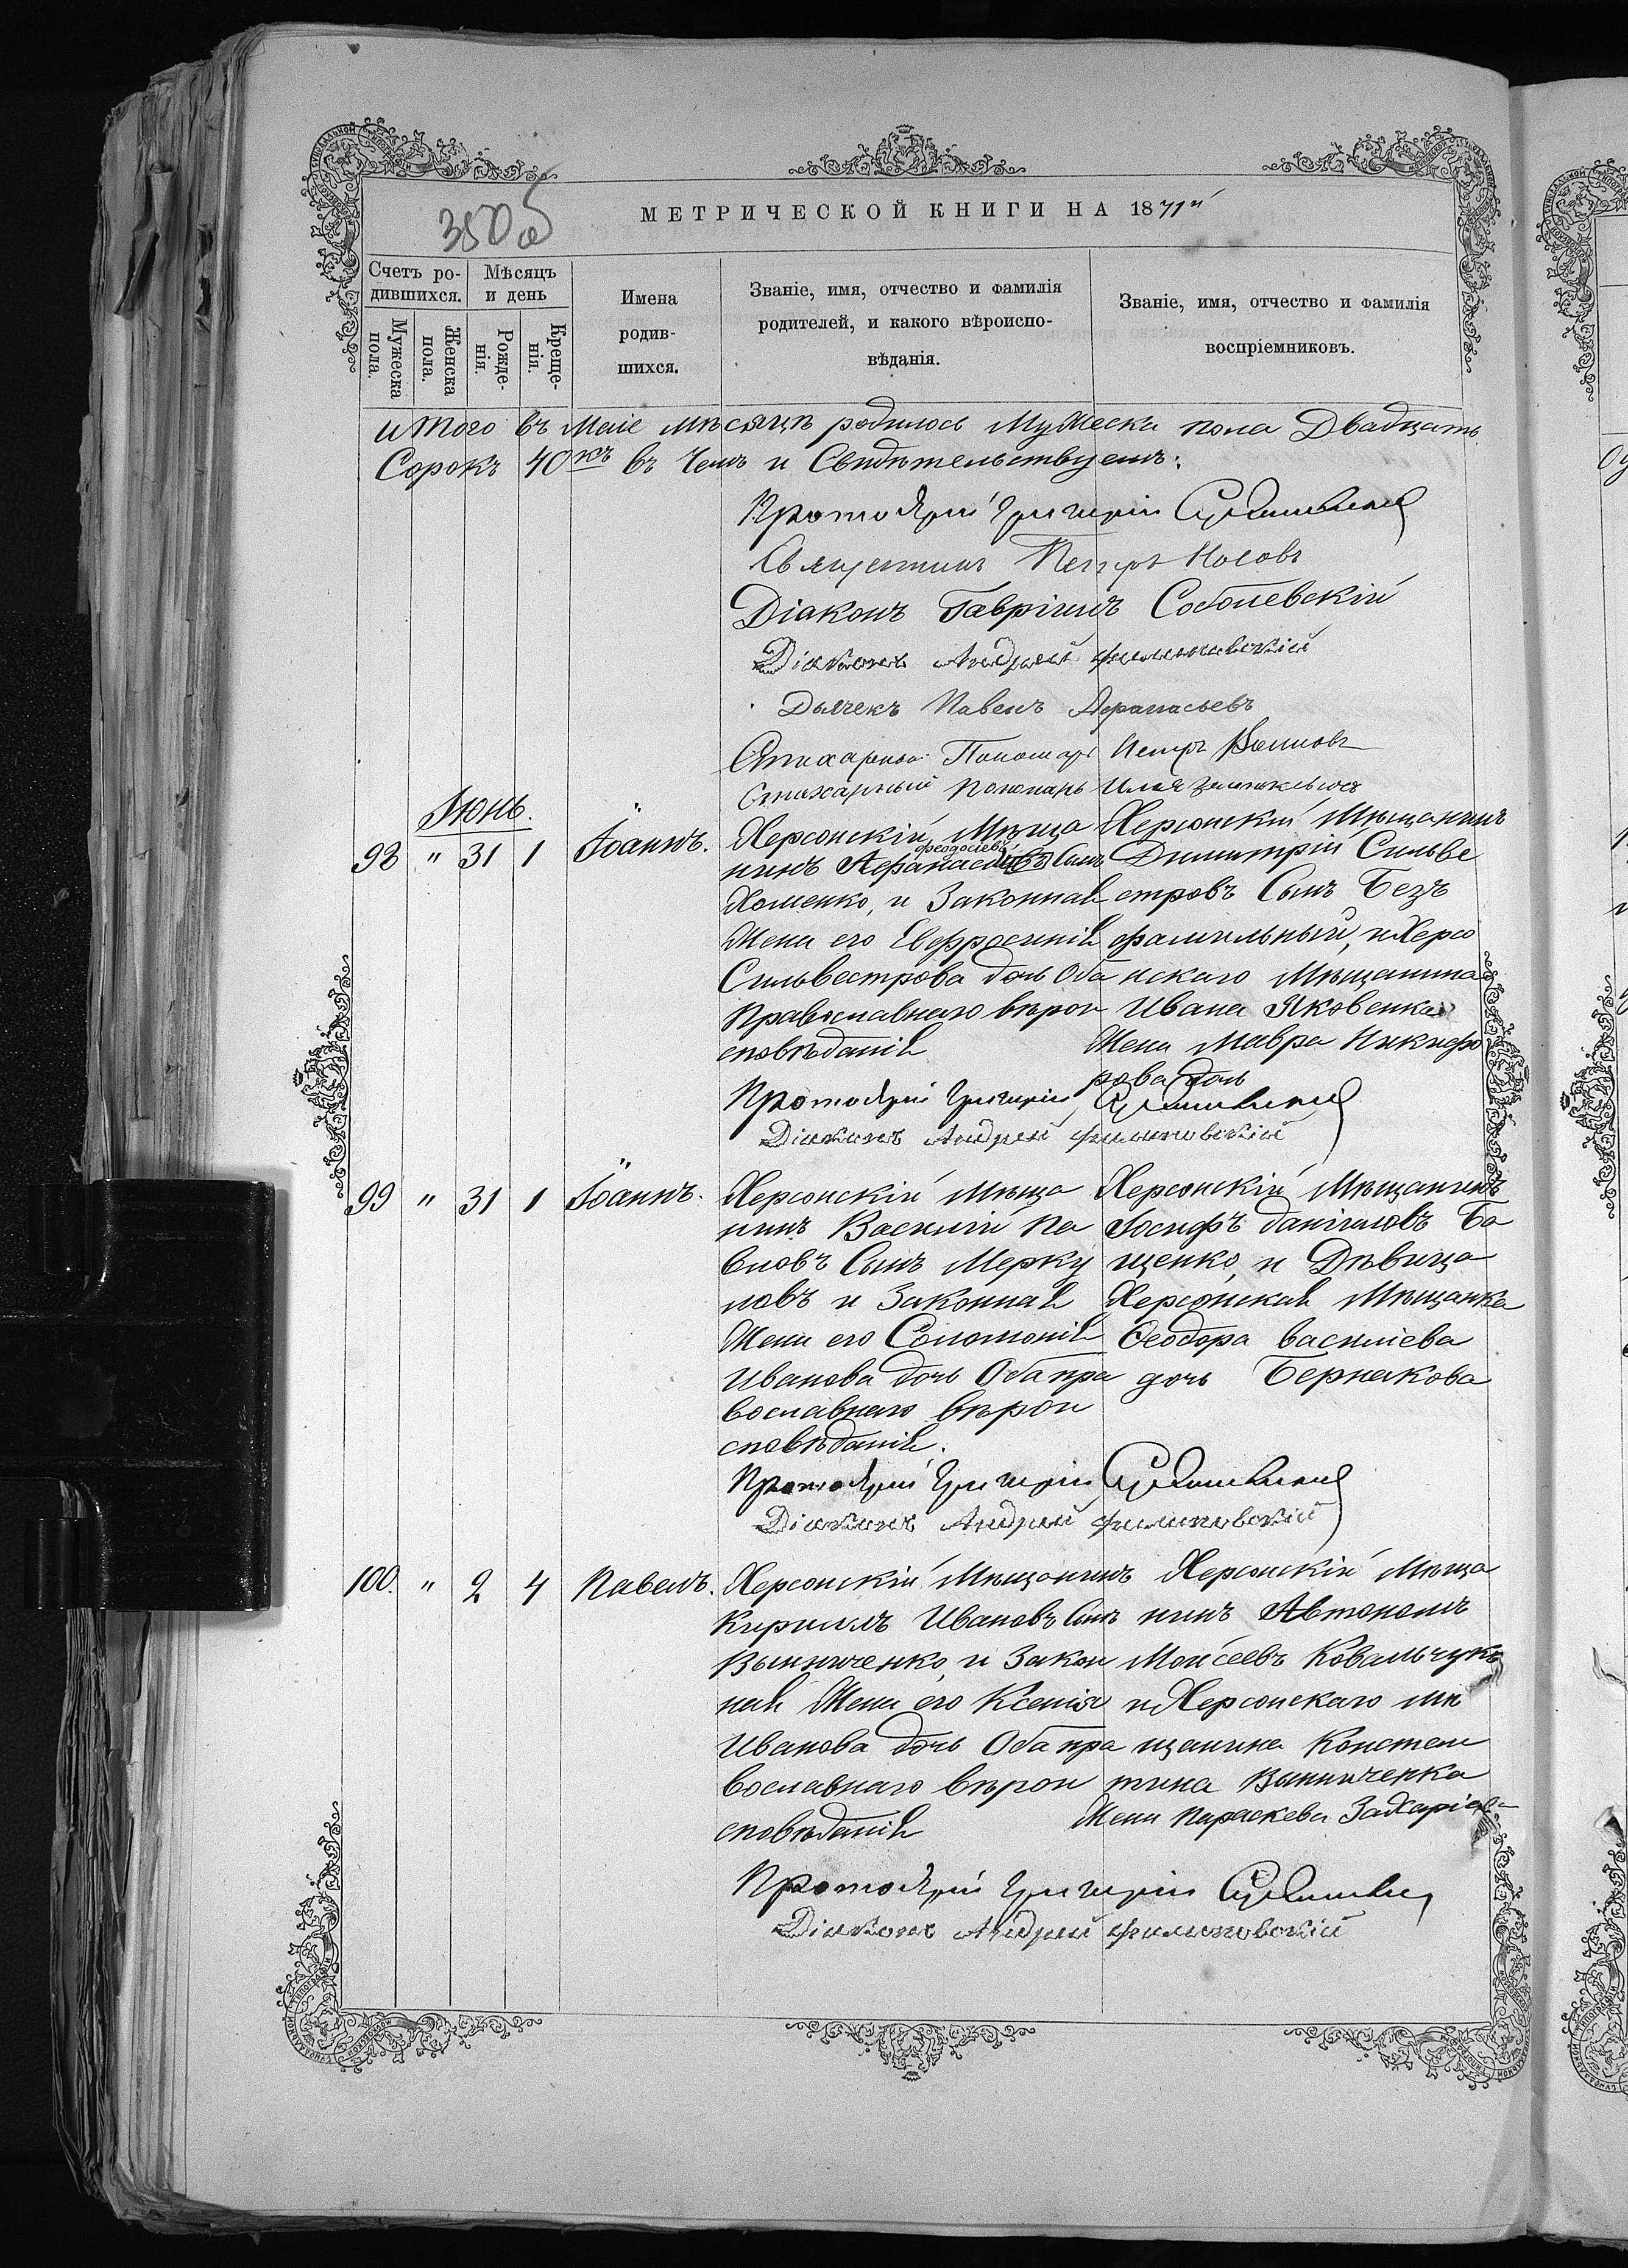 350 об
МЕТРИЧЕСКОЙ КНИГИ НА 1871й
Счетъ ро-
дившихся.
Мѣсяцъ
и день
Мужеска
пола.
Женска
пола.
Рожде-
нія.
Креще-
нія.
Имена
родив-
шихся.
Званіе, имя, отчество и фамилія
родителей, и какого вѣроиспо-
вѣданія.
Званіе, имя, отчество и фамилія
воспріемниковъ.
итого въ Маіе мѣсяцѣ родилось Мужеска пола Двадцать
Сорокъ 40къ въ Чемъ и Свидѣтельствуемъ:
Протоіерей Григорій
Священникъ Петръ Носовъ
Діаконъ Гавріилъ Соболевскій
Діаконъ Андрей Филиповскій
Дьячекъ Павелъ Афанасьевъ
Стихарный Пономарь Петръ
Стихарный пономарь Илья
Іюнь.
98 " 31 1 Іоаннъ.
Херсонскій Мѣща
феодосіевъ
нинъ Афанасій Сынъ
Хоменко, и Законная
Жена его Евфросинія
Сильвестрова дочь Оба
Православнаго вѣрои
сповѣданія
Херсонскій Мѣщанинъ
Димитрій Сильве
стровъ Сынъ Безъ
фамильный, и Херсо
нскаго Мѣщанина
Ивана Яковенка
Жена Мавра Никифо
рова дочь
Протоіерей Григорій
Діаконъ Андрей Филиповскій
99 " 31 1 Іоаннъ.
Херсонскій Мѣща
нинъ Василій Па
вловъ Сынъ Мерку
ловъ и Законная
Жена его Соломонія
Иванова дочь Оба пра
вославнаго вѣрои
сповѣданія.
Херсонскій Мѣщанинъ
Іосифъ Даніиловъ Ба
щенко, и Дѣвица
Херсонская Мѣщанка
Феодора Василіева
дочь Бернакова
Протоіерей Григорій
Діаконъ Андрей Филиповскій
100. " 2 4 Павелъ.
Херсонскій Мѣщанинъ
Кириллъ Ивановъ Сынъ
Винниченко, и Закон
ная Жена его Ксенія
Иванова дочь Оба пра
вославнаго вѣрои
сповѣданія
Херсонскій Мѣща
нинъ Автономъ
Моѵсеевъ Ковальчукъ
и Херсонскаго мѣ
щанина Констан
тина Винниченка
Жена Параскева Захаріева
Протоіерей Григорій
Діаконъ Андрей Филиповскій